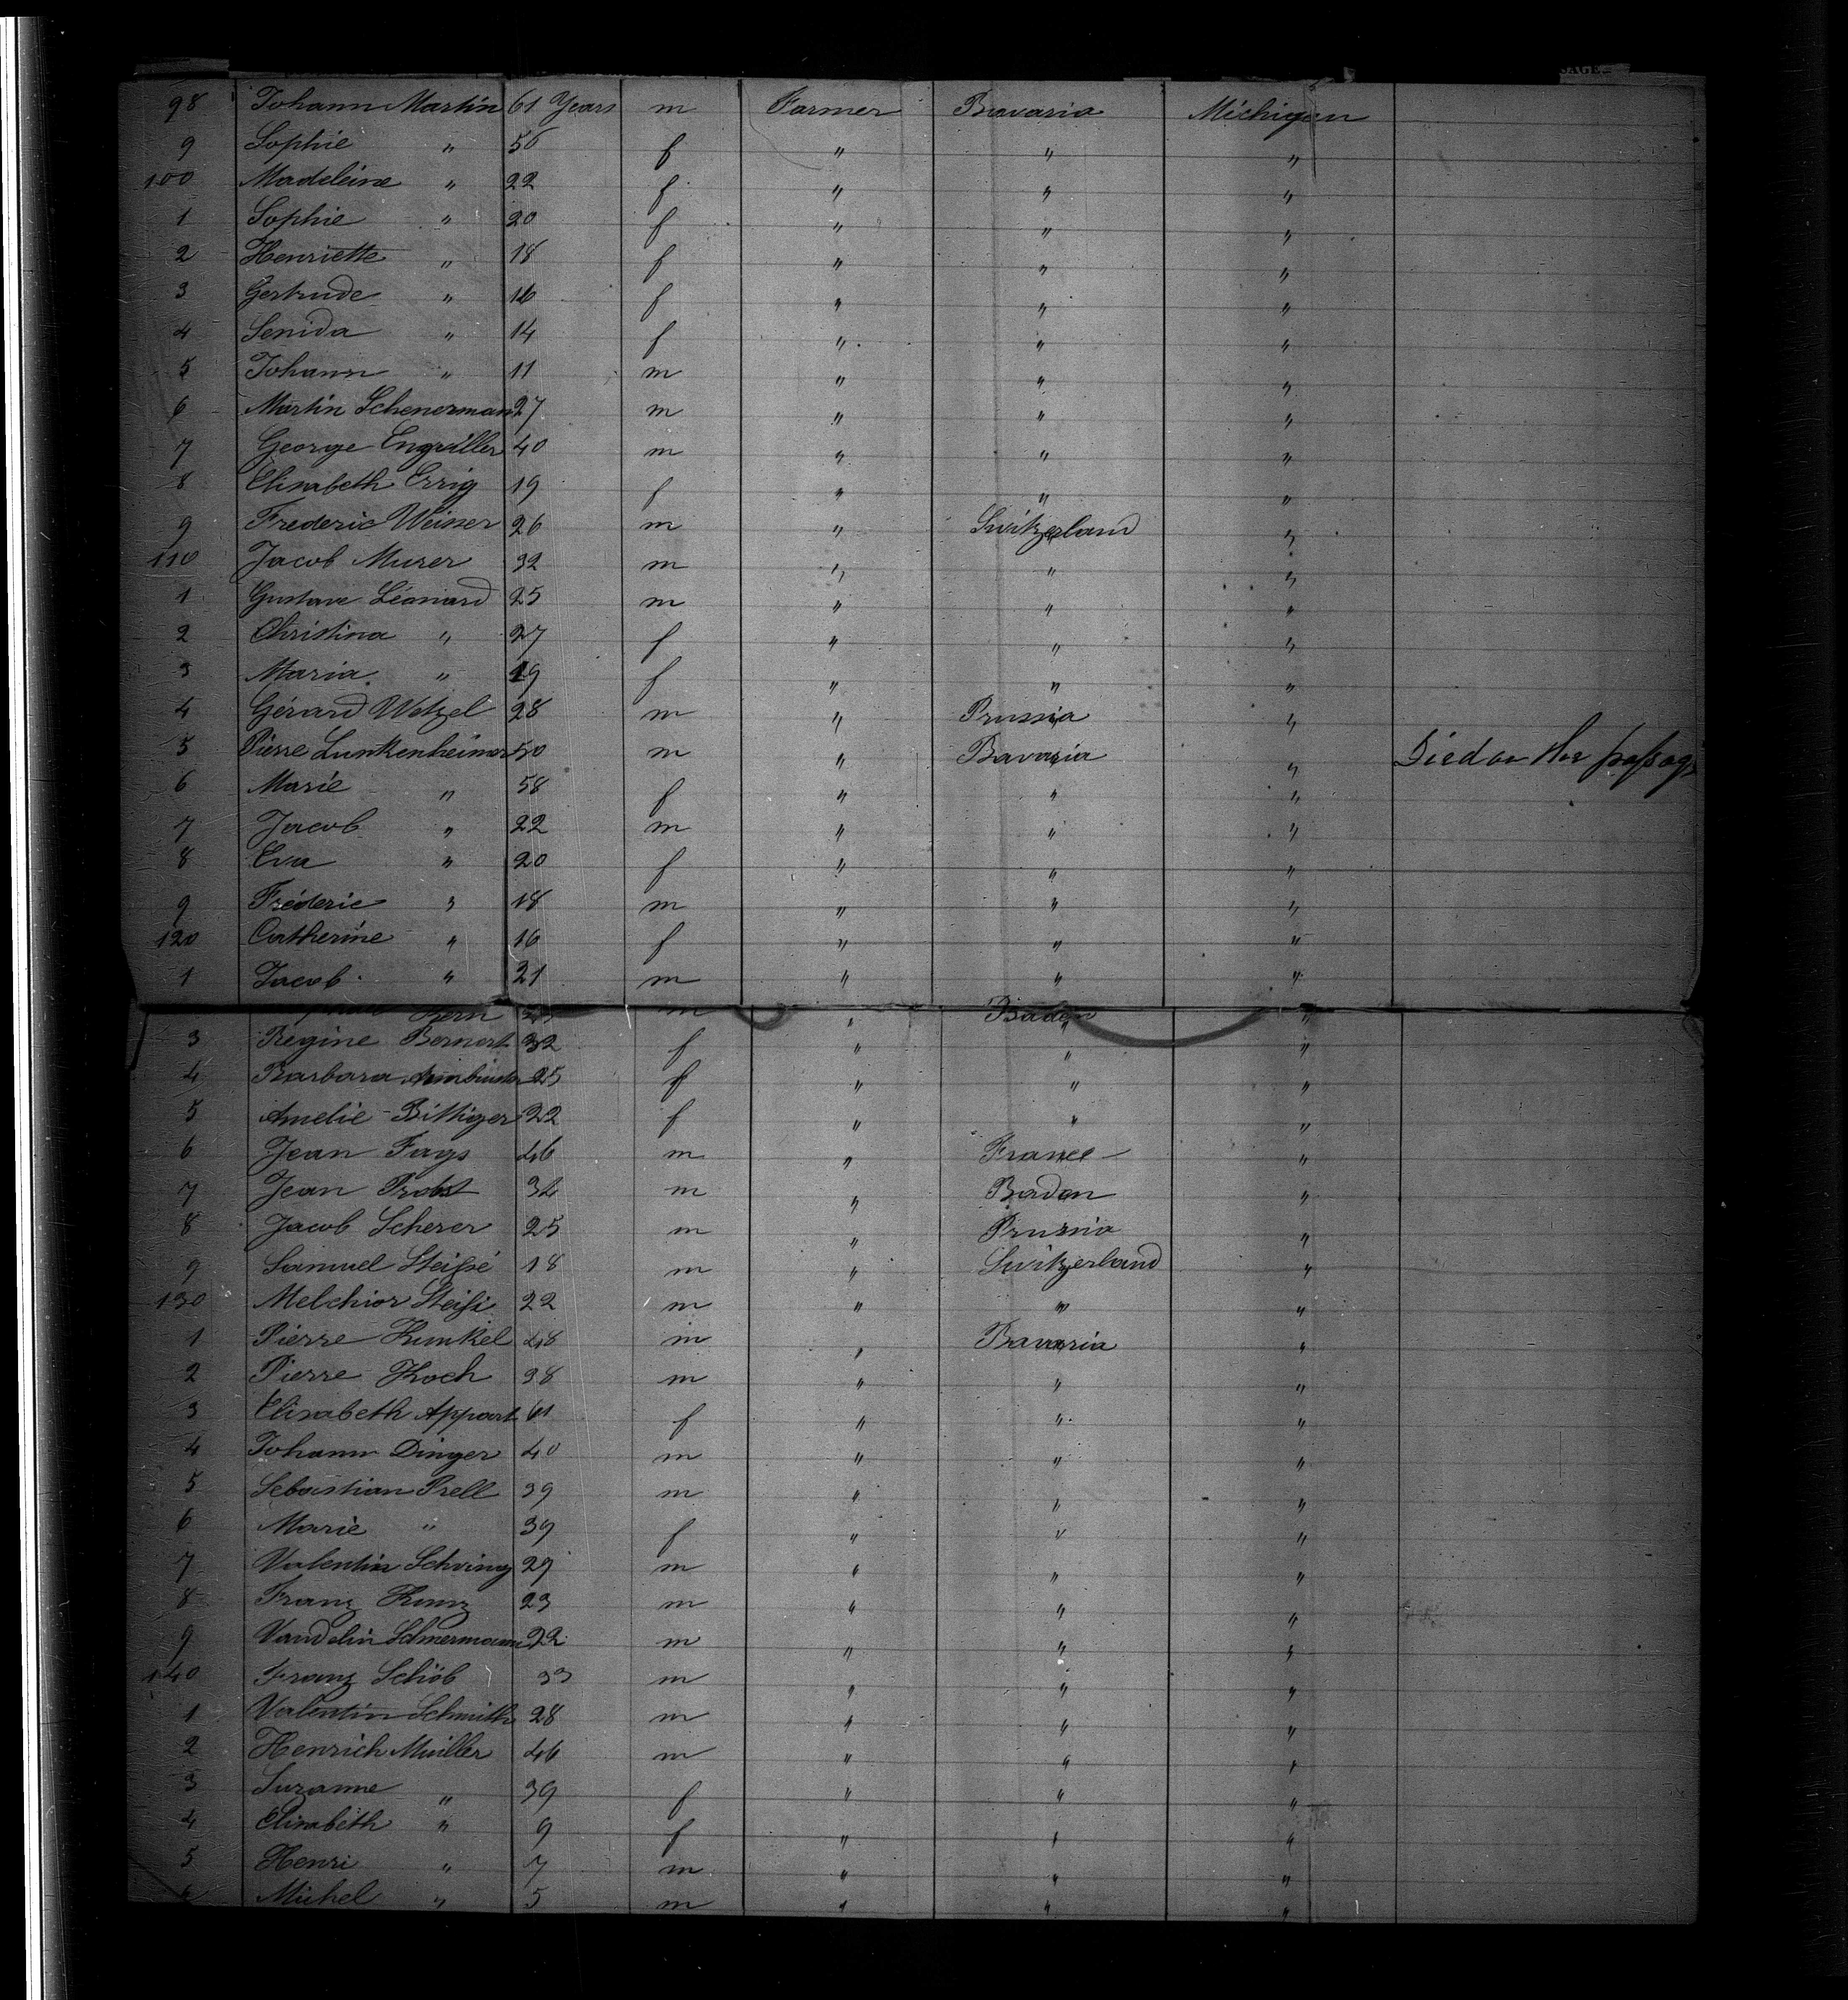 SAGE
98 Johann Martin 61 Years m Farmer Bavaria Michigan
9 Sophie " 56 f " " "
100 Madeleine " 22 f " " "
1 Sophie " 20 f " " "
2 Henriette " 18 f " " "
3 Gertrude " 16 f " " "
4 Senida " 14 f " " "
5 Johann " 11 m " " "
6 Martin Schenerman 27 m " " "
7 George Engviller 40 m " " "
8 Elisabeth Errig 19 f " " "
9 Frederic Weisser 26 m " Switzerland "
110 Jacob Murer 32 m " " "
1 Gustave Léonard 25 m " " "
2 Christina " 27 f " " "
3 Maria " 19 f " " "
4 Gérard Wetzel 28 m " Prussia "
5 Pierre Lunkenheimer 50 m " Bavaria " Died on the passage
6 Marie " 58 f " " "
7 Jacob " 22 m " " "
8 Eva " 20 f " " "
9 Fréderic " 18 m " " "
120 Catherine " 16 f " " "
1 Jacob " 21 m " " "
Kern m " Baden "
3 Regine Bernert 32 f " " "
4 Barbara 25 f " " "
5 Amelie Bittiger 22 f " " "
6 Jean Fays 46 m " France "
7 Jean Probst 34 m " Baden "
8 Jacob Scherer 25 m " Prussia "
9 Samuel Steissé 18 m " Switzerland "
130 Melchior Steissi 22 m " " "
1 Pierre Kunkel 48 m " Bavaria "
2 Pierre Koch 38 m " " "
3 Elisabeth Appart 61 f " " "
4 Johann Dinger 40 m " " "
5 Sebastian Prell 39 m " " "
6 Marie " 39 f " " "
7 Valentin Schving 29 m " " "
8 Franz Kunz 23 m " " "
9 Vandelin Schnermann 22 m " " "
140 Franz Schöb 33 m " " "
1 Valentin Schmith 28 m " " "
2 Henrich Muiller 46 m " " "
3 Suzanne " 39 f " " "
4 Elisabeth " 9 f " " "
5 Henri " 7 m " " "
6 Michel " 5 m " " "